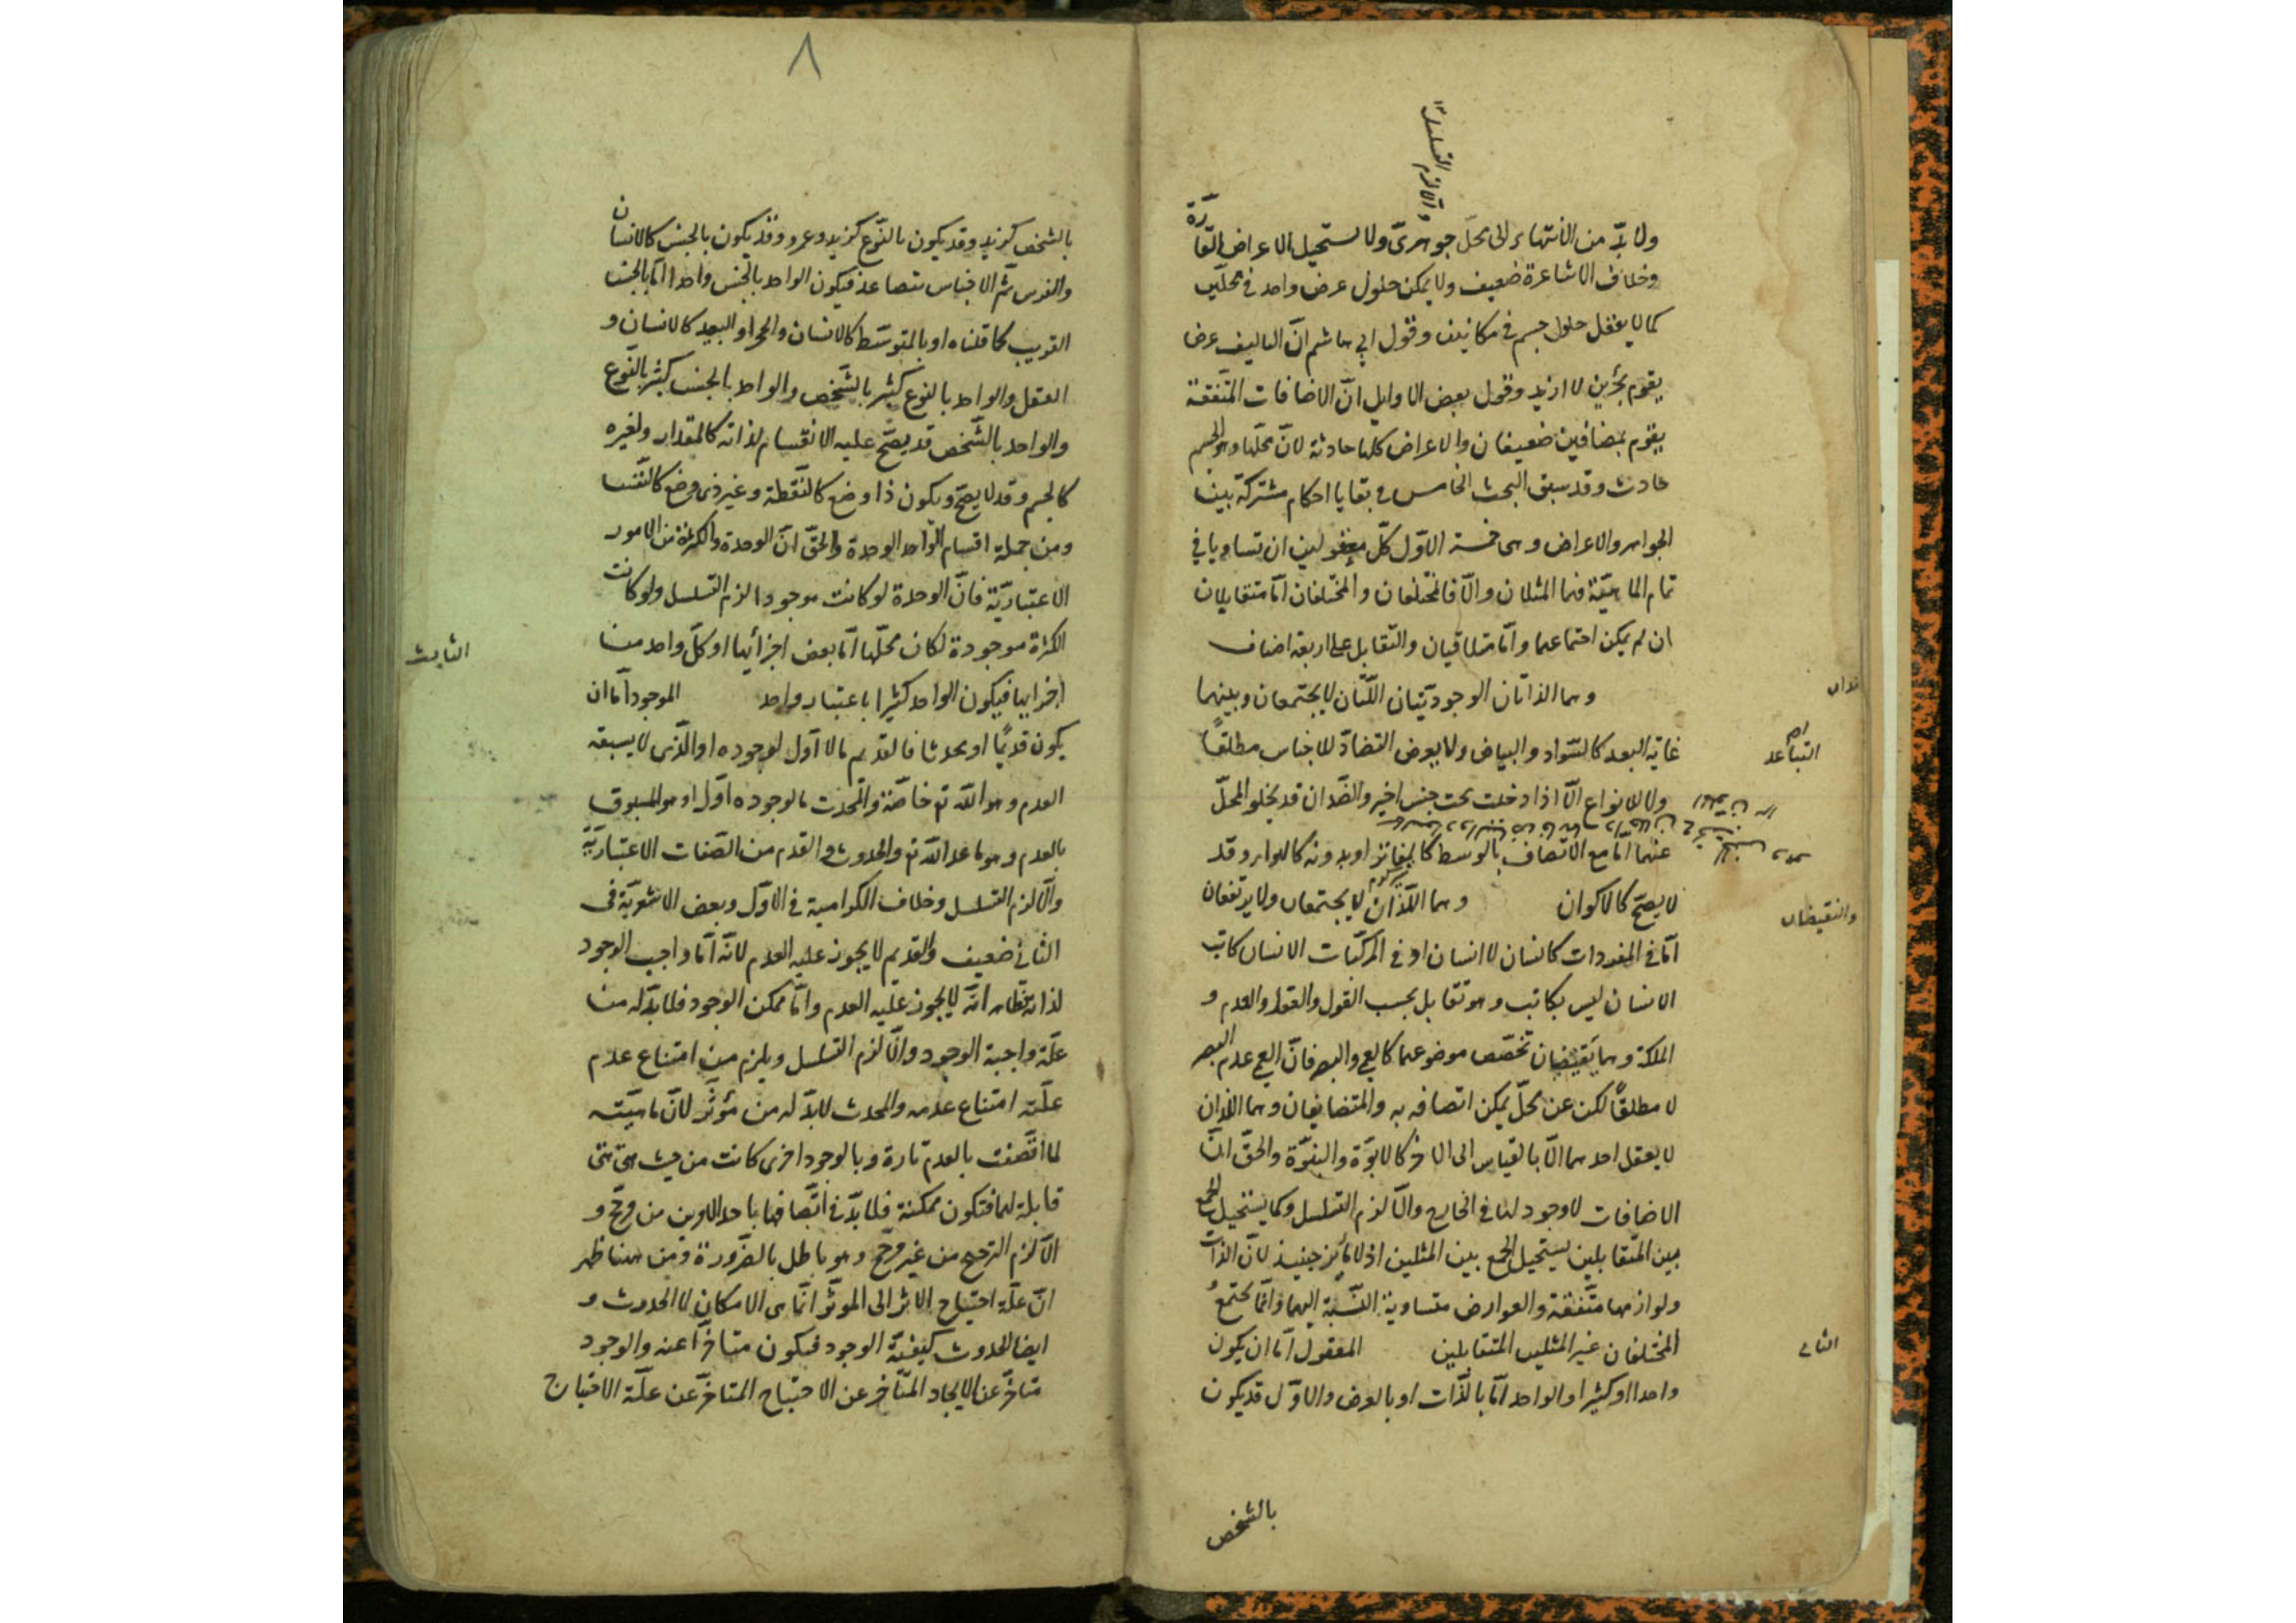 والا لزم التسلسل
ولا بدّ من الانتهاء الى محلّ جوهرىّ ولا يستحيل الاعراض القارّة
وخلاف الاشاعرة ضعيف ولا يمكن حلول عرض واحد فى محلّين
كما لا يعقل حلول جسم فى مكانين وقول ابى هاشم انّ التاليف عرض
يقوم بجزئين لا ازيد وقول بعض الاوايل انّ الاضافات المتّفقة
يقوم بمضافين ضعيفان والاعراض كلها حادثة لانّ محلّها وهو الجسم
حادث وقد سبق البحث الخامس فى بقايا احكام مشتركة بين
الجواهر والاعراض وهى خمسة الاوّل كلّ معقولين ان تساويا فى
تمام الماهيّة فهما المثلان والّا فالمختلفان والمختلفان امّا متقابلان
ان لم يمكن اجتماعهما وامّا متلاقيان والتقابل على اربعة اصناف
وهما الذاتان الوجوديّتان اللّتان لا يجتمعان وبينهما
غاية البعد كالسّواد والبياض ولا يعرض التضادّ للاجناس مطلقًا
التباعد
ولا للانواع الّا اذا دخلت تحت جنس اخير والضّدان قد يخلو المحلّ
عنهما امّا مع الاتّصاف بالوسط كالفاتر او بدونه كالهواء وقد
لا يصحّ كالاكوان وهما اللّذان لا يجتمعان ولا يرتفعان
والنقيضان
امّا فى المفردات كانسان لا انسان او فى المركّبات الانسان كاتب
الانسان ليس بكاتب وهو تقابل بحسب القول والعقد والعدم و
الملكة وهما نقيضان تخصّص موضوعهما كالعمى والبصر فانّ العمى عدم البصر
لا مطلقًا لكن عن محلّ يمكن اتصافه به والمتضايفان وهما اللذان
لا يعقل احدهما الّا بالقياس الى الاخر كالابوّة والبنوّة والحقّ انّ
الاضافات لا وجود لها فى الخارج والّا لزم التسلسل وكما يستحيل الجمع
بين المتقابلين يستحيل الجمع بين المثلين اذ لا مايز حينيذ لانّ الذات
ولوازمها متّفقة والعوارض متساوية النّسبة اليهما وانّما يجتمع
المختلفان غير المثلين المتقابلين المعقول امّا ان يكون
الثانى
واحدا او كثيرا والواحد امّا بالذّات او بالعرض والاوّل قد يكون
بالشخص
٨
بالشخص كزيد وقد يكون بالنّوع كزيد وعمرو وقد يكون بالجنس كالانسان
والفرس ثمّ الاجناس تتصاعد فيكون الواحد بالجنس واحدا امّا بالجنس
القريب كما قلناه او بالمتوسّط كالانسان والحجر او البعيد كالانسان و
العقل والواحد بالنوع كثير بالشّخص والواحد بالجنس كثير بالنّوع
والواحد بالشّخص قد يصحّ عليه الانقسام لذاته كالمقدار ولغيره
كالجسم وقد لا يصحّ ويكون ذا وضع كالنّقطة وغير ذى وضع كالنّفس
ومن جملة اقسام الواحد الوحدة والحقّ انّ الوحدة والكثرة من الامور
الاعتباريّة فانّ الوحدة لو كانت موجودا لزم التسلسل ولو كانت
الكثرة موجودة لكان محلّها امّا بعض اجزائها او كلّ واحد من
الثالث
اجزايها فيكون الواحد كثيرا باعتبار واحد الموجود امّا ان
يكون قديمًا او محدثا فالقديم ما لا اوّل لوجوده او الّذى لا يسبقه
العدم وهو اللّه تع خاصّة والمحدث ما لوجوده اوّل او هو المسبوق
بالعدم وهو ما عدا اللّه تع والحدوث والقدم من الصّفات الاعتباريّة
والّا لزم التسلسل وخلاف الكرامية فى الاوّل وبعض الاشعريّة فى
الثانى ضعيف والقديم لا يجوز عليه العدم لانّه امّا واجب الوجود
لذاته فظاهر انّه لا يجوز عليه العدم وامّا ممكن الوجود فلا بدّ له من
علّة واجبة الوجود والّا لزم التسلسل ويلزم من امتناع عدم
علّته امتناع عدمه والمحدث لا بدّ له من مؤثّر لانّ ماهيّته
لما اتّصفت بالعدم تارة وبالوجود اخرى كانت من حيث هى هى
قابلة لهما فتكون ممكنة فلا بدّ فى اتّصافها باحد الامرين من مرجّح و
الّا لزم الترجيح من غير مرجّح وهو باطل بالضّرورة ومن هنا ظهر
انّ علّة احتياج الاثر الى الموثّر انّما هى الامكان لا الحدوث و
ايضا الحدوث كيفيّة الوجود فيكون متاخرّا عنه والوجود
متاخّر عن الايجاد المتاخّر عن الاحتياج المتاخّر عن علّة الاحتياج